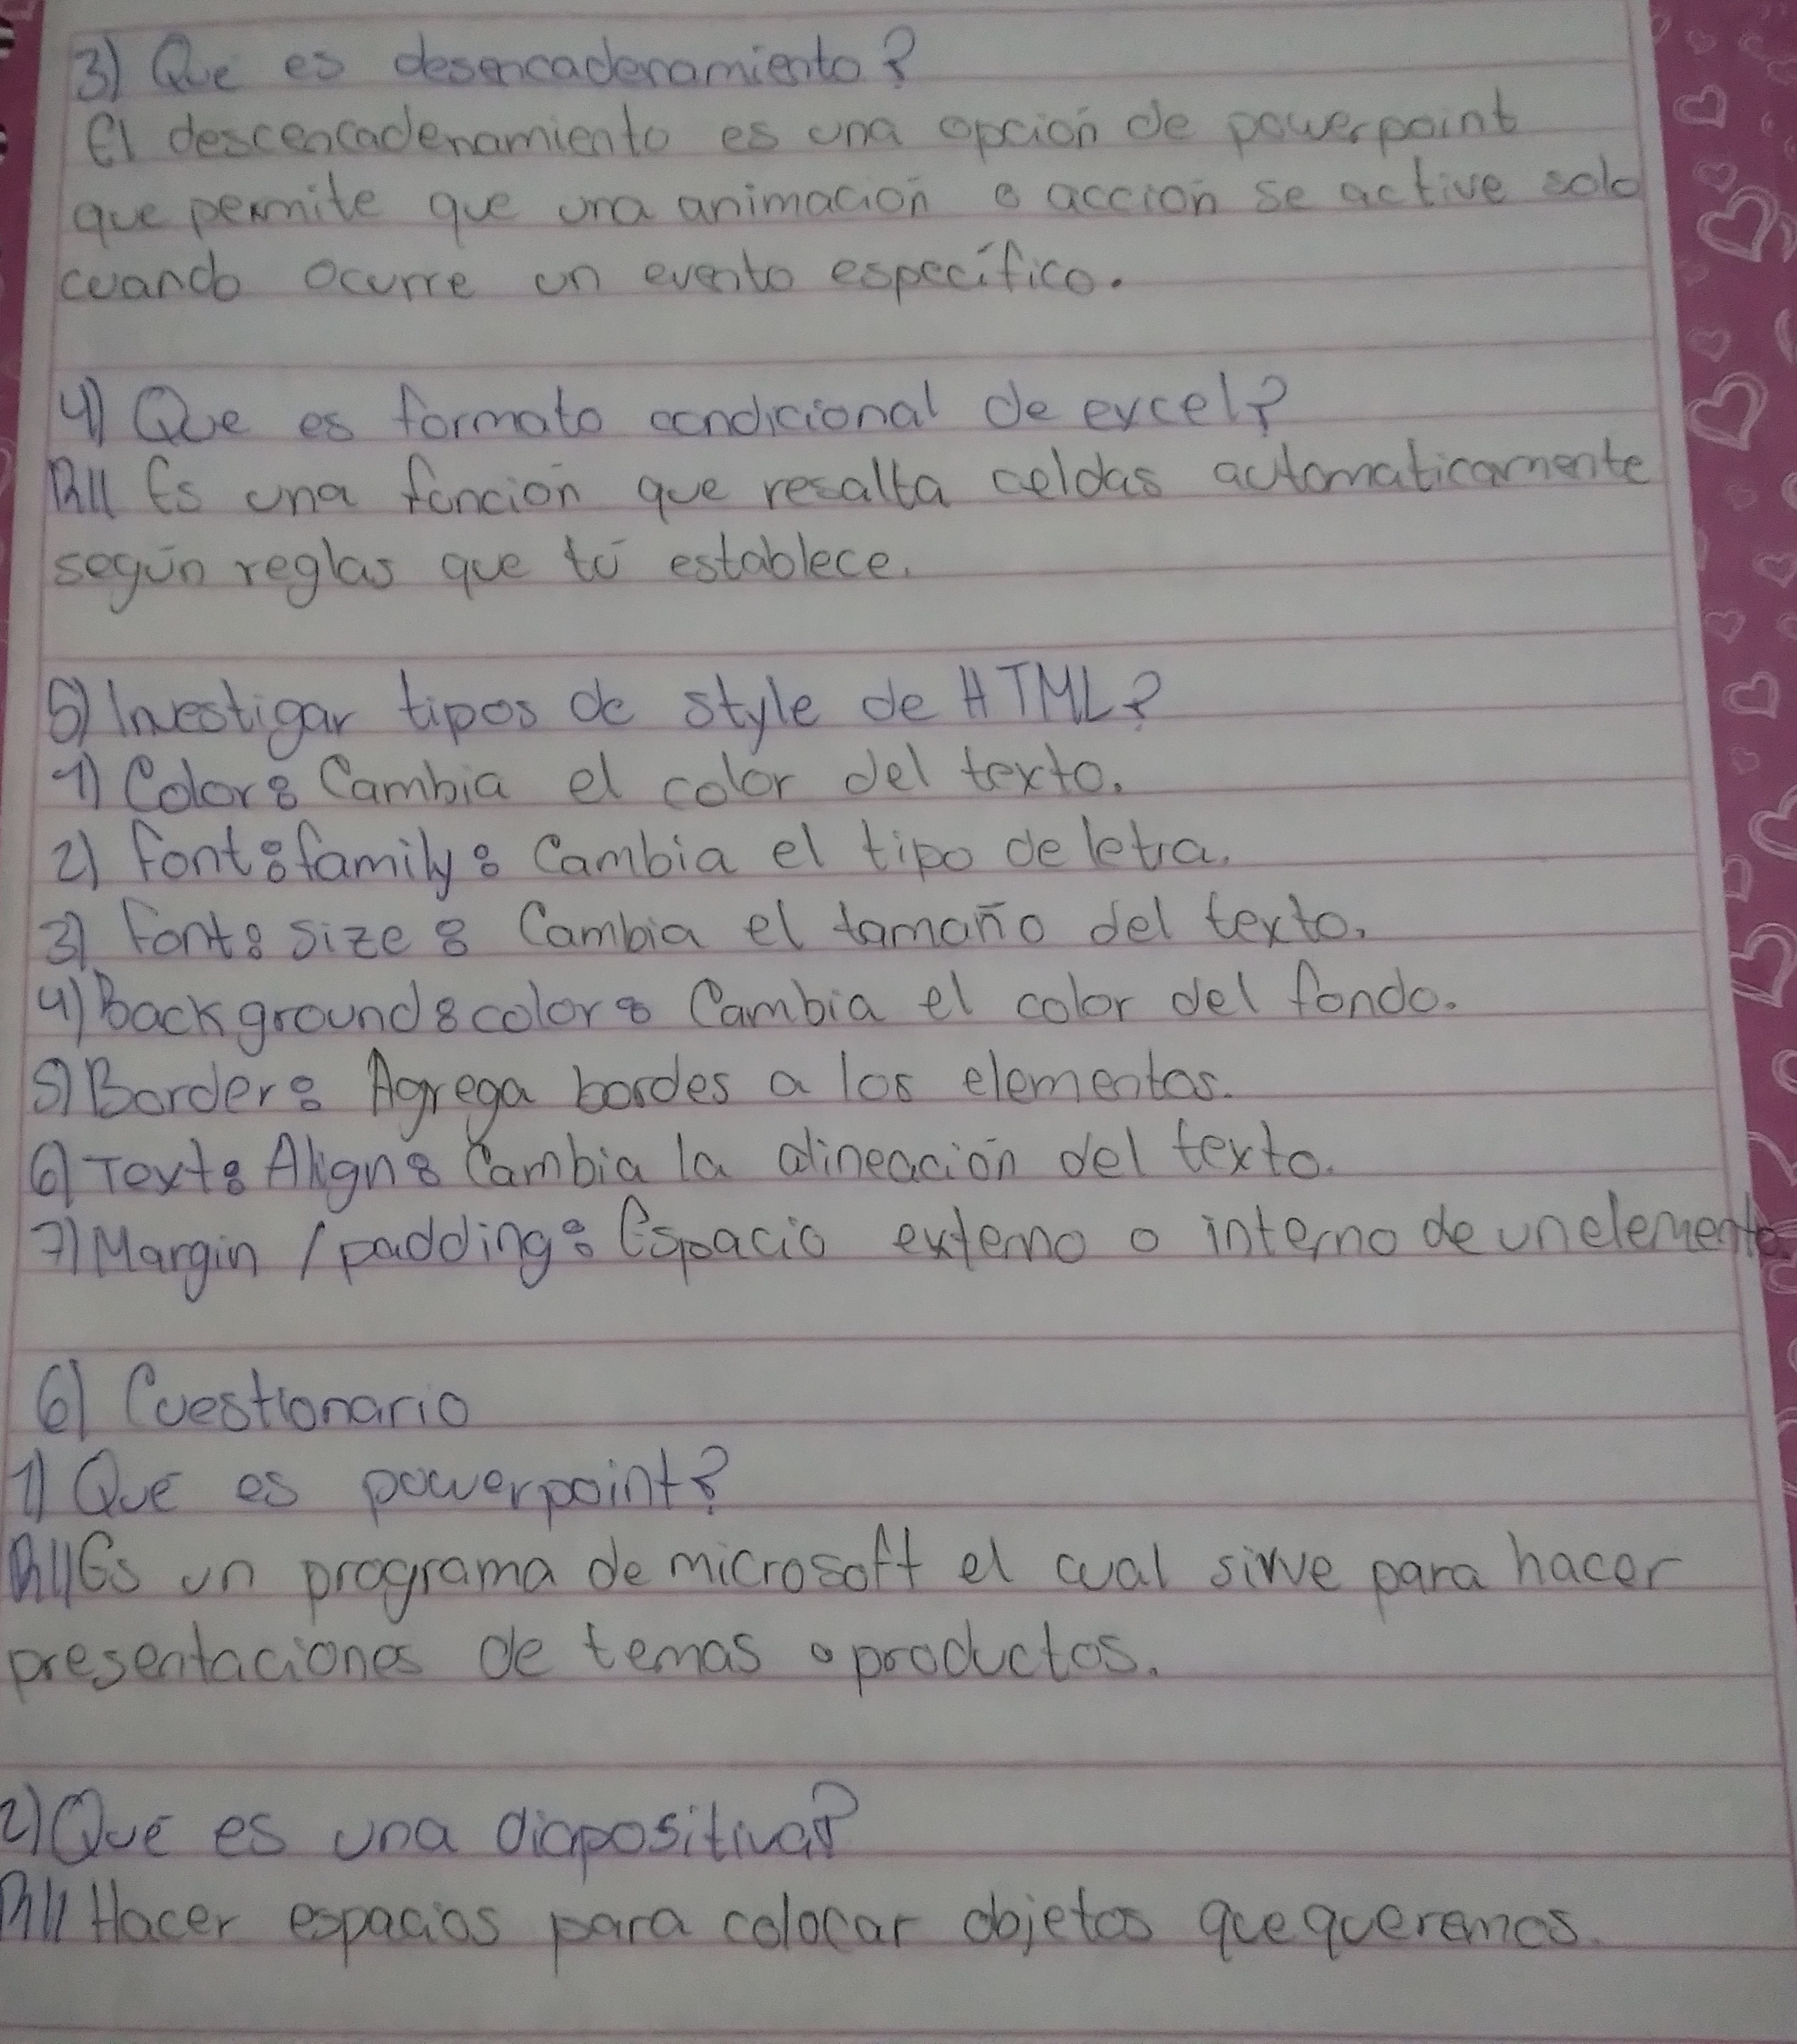 3) Que es desencadenamiento?
El descencadenamiento es una opción de powerpoint
que permite que una animación o acción se active solo
cuando ocurre un evento específico.
4) Que es formato condicional de excel?
R// Es una función que resalta celdas automaticamente
según reglas que tú establece.
5) Investigar tipos de style de HTML?
1) Color: Cambia el color del texto.
2) Font:family: Cambia el tipo de letra.
3) Font: size: Cambia el tamaño del texto.
4) Background:color: Cambia el color del fondo.
5) Border: Agrega bordes a los elementos.
6) Text: Align: Cambia la alineación del texto.
7) Margin / padding: Espacio externo o interno de un elemento.
6) Cuestionario
1) Que es powerpoint?
R// Es un programa de microsoft el cual sirve para hacer
presentaciones de temas o productos.
2) Que es una diapositiva?
R// Hacer espacios para colocar objetos que queremos.